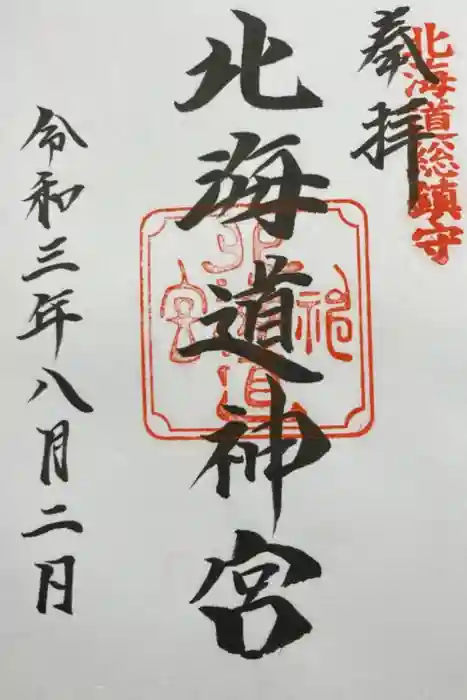 北海道総鎮守
奉拝
北海道神宮
北海道神宮
令和三年八月二日